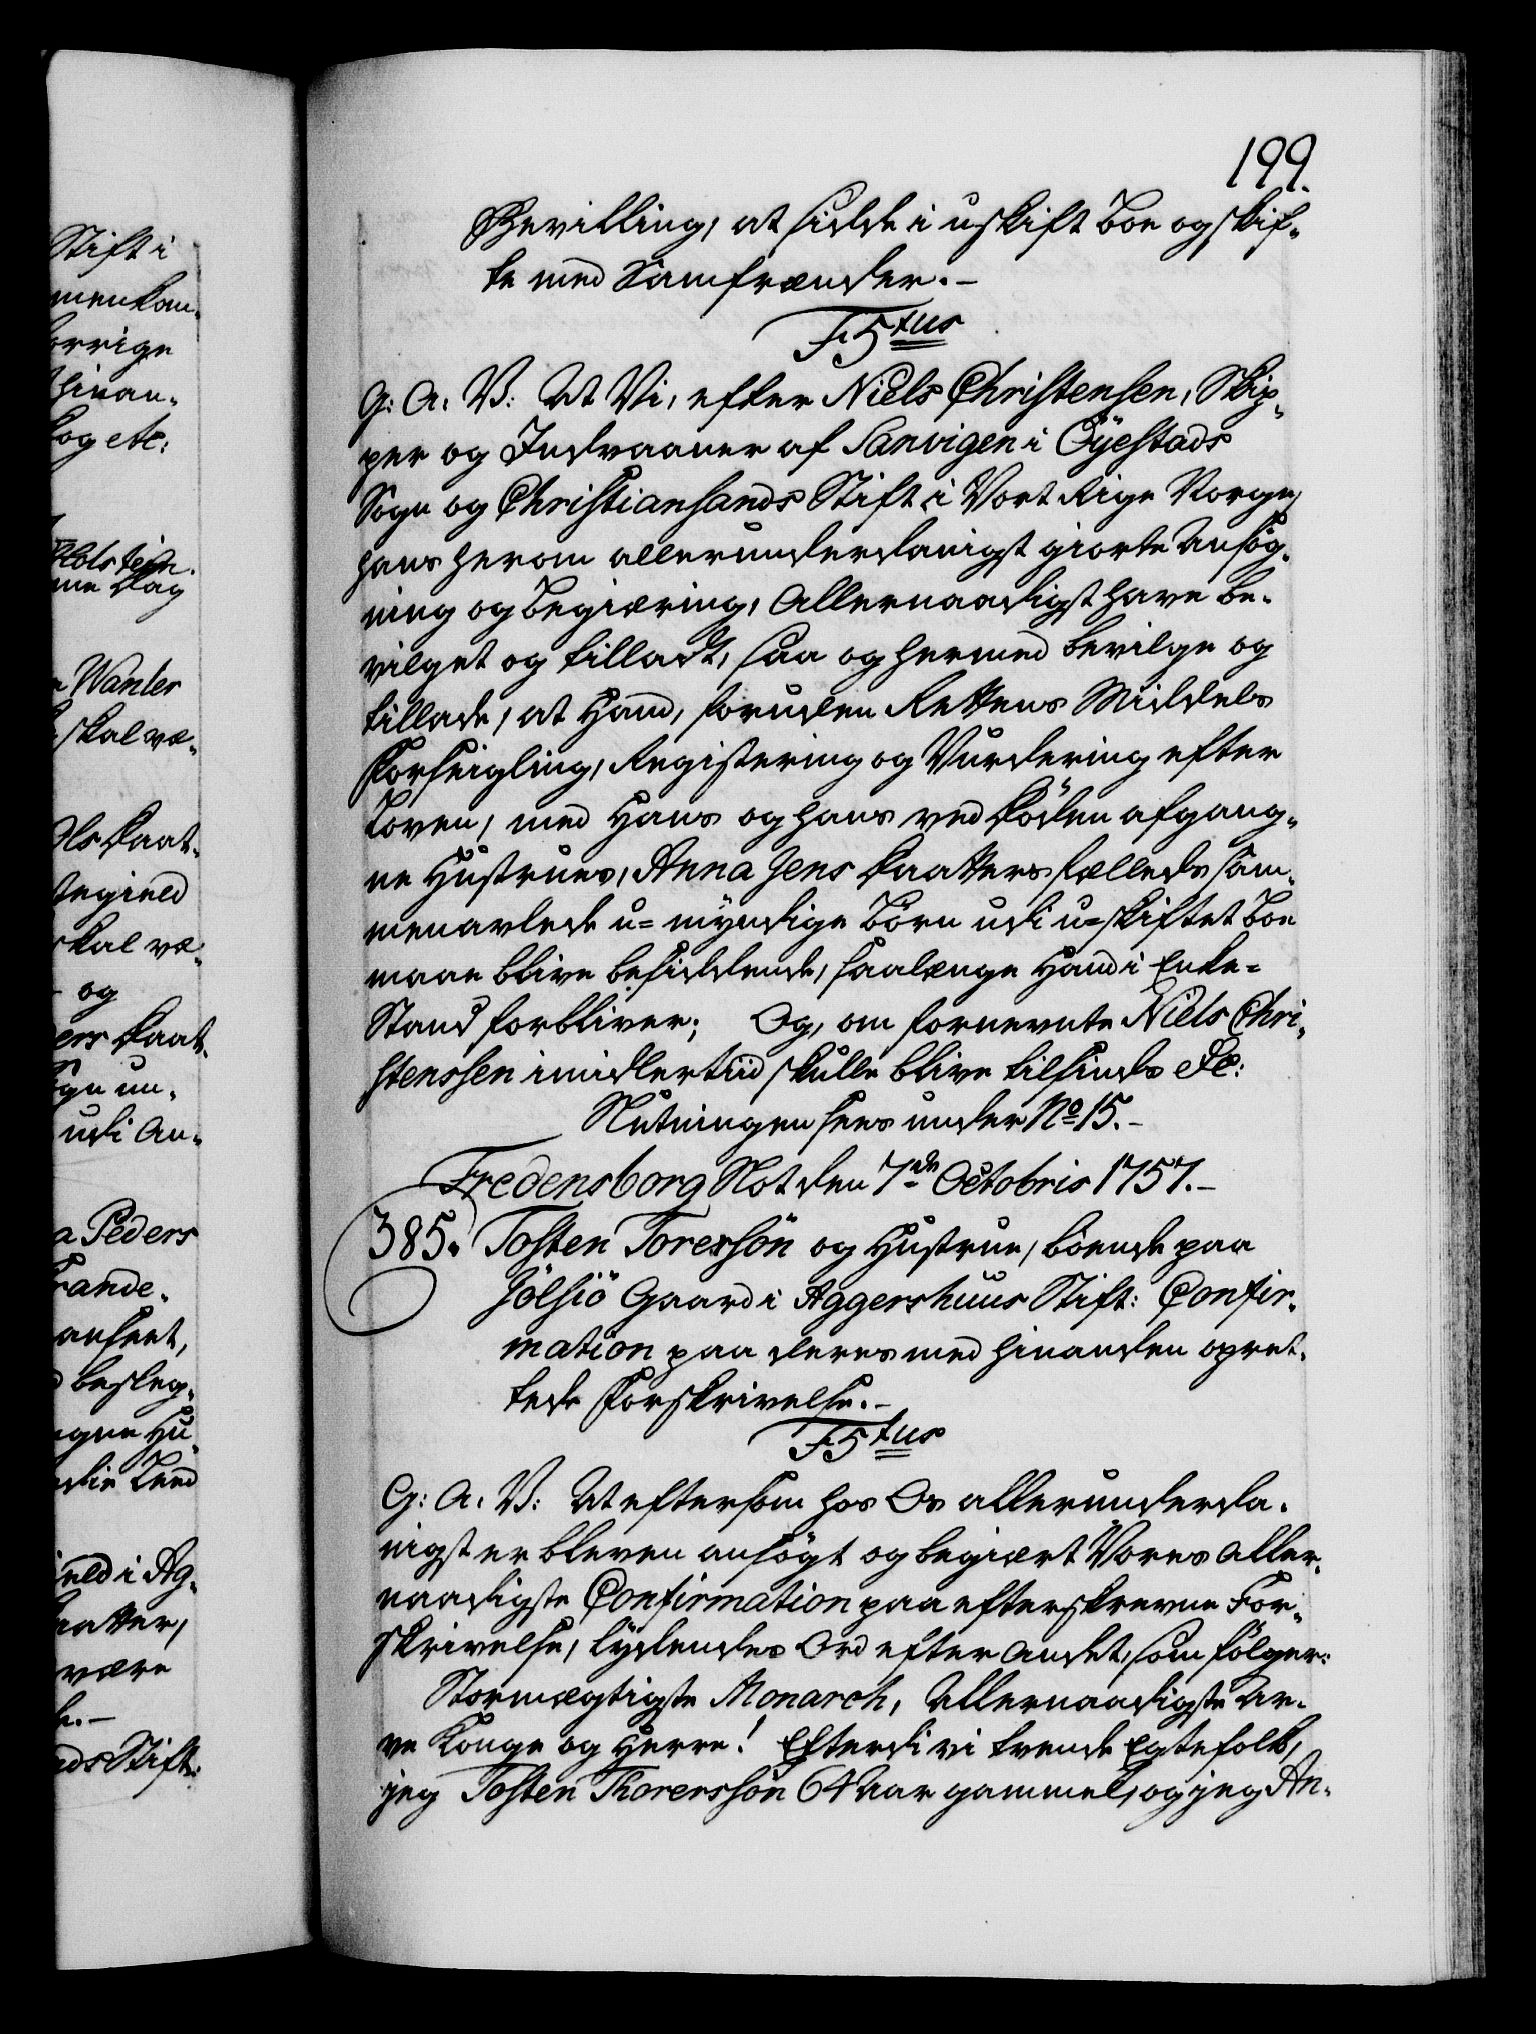 199.
Bevilling, at sidde i uskift Boe og skif-
te med Samfrænder.-
F 5tus
G: A: V: At Vi, efter Niels Christensen, Skip-
per og Indvaaner af Sanvigen i Öyestads
Sogn og Christiansands Stift i Vort Rige Norge,
hans herom allerunderdanigst giorte Ansøg-
ning og Begiæring, Allernaadigst have be-
vilget og tilladt, saa og hermed bevilge og
tillade, at Hand, foruden Rettens Middels
Forseigling, Registering og Vurdering efter
Loven, med Hans og hans ved Döden afgang-
ne Hustrues, Anna Jens Daatters fælleds sam-
menavlede u=myndige Börn udi u=skiftet Boe
maae blive besiddende, saalænge Hand i Enke-
Stand forbliver; Og, om fornevnte Niels Chri-
stenssen imidlertiid skulle blive tilsinds etc:
Slutningen sees under No 15.-
Fredensborg Slot den 7de Octobris 1757.-
385. Tosten Toressön og Hustrue, boende paa
Jölsiö Gaard i Aggershuus Stift: Confir-
mation paa deres med hinanden opret-
tede Forskrivelse.-
F 5tus
G: A: V: At eftersom hos Os allerunderda-
nigst er bleven ansögt og begiært Vores Aller-
naadigste Confirmation paa efterskrevne For-
skrivelse, lydendes Ord efter andet, som fölger:
Stormægtigste Monarch, Allernaadigste Ar-
ve Konge og Herre! Efterdi vi tvende Egtefolk,
jeg Tosten Thorerssön 64 Aar gammel, og jeg An-
Stift i
menkom-
orrige
hinan-
og etc:
Holstein.
me Dag
Wanler
skal væ-
Ols Daat-
tegield
skal væ-
og
ers Daat-
gn un-
udi An-
a Peders
rande-
anseet,
besleg-
gne Hu-
eld i Ag-
aatter,
være
ds Stift: